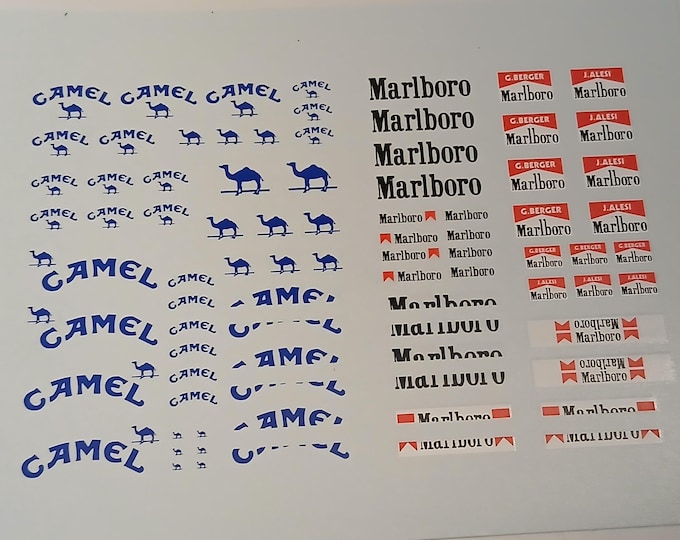 CAMEL CAMEL CAMEL CAMEL
CAMEL
CAMEL CAMEL CAMEL
CAMEL CAMEL CAMEL
CAMEL CAMEL CAMEL
CAMEL CAMEL
CAMEL
CAMEL
CAMEL CAMEL
CAMEL
CAMEL CAMEL
CAMEL
CAMEL CAMEL
CAMEL
Marlboro
Marlboro
Marlboro
Marlboro
Marlboro Marlboro
Marlboro Marlboro
Marlboro Marlboro
Marlboro Marlboro
Marlboro
Marlboro
Marlboro
Marlboro
Marlboro
Marlboro
G.BERGER J.ALESI
Marlboro Marlboro
G.BERGER J.ALESI
Marlboro Marlboro
G.BERGER J.ALESI
Marlboro Marlboro
G.BERGER J.ALESI
Marlboro Marlboro
G.BERGER G.BERGER G.BERGER
Marlboro Marlboro Marlboro
J.ALESI J.ALESI J.ALESI
Marlboro Marlboro Marlboro
Marlboro
Marlboro
Marlboro
Marlboro
Marlboro
Marlboro